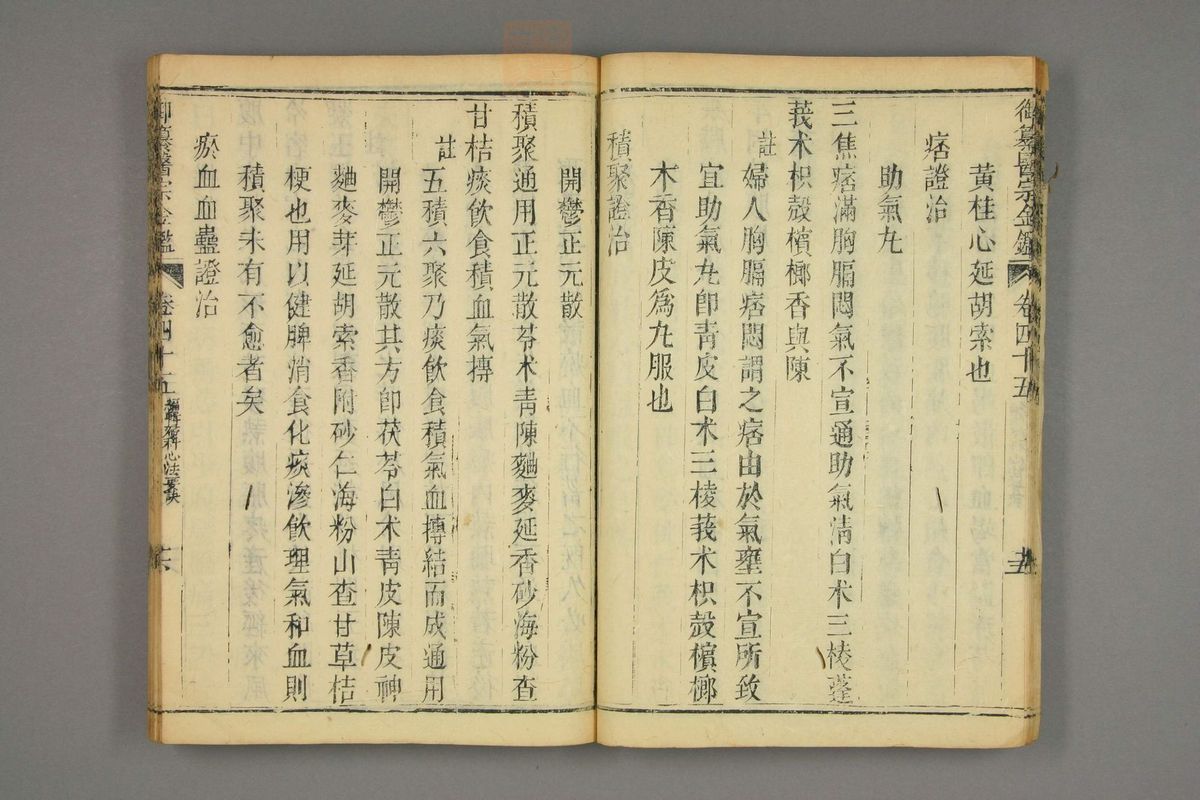 御纂醫宗金鑑 卷四十五
黃桂心延胡索也
痞證治
助氣丸
三焦痞滿胸膈悶氣不宣通助氣淸白朮三棱蓬
莪朮枳殼檳榔香與陳
註 婦人胸膈痞悶謂之痞由於氣壅不宣所致
宜助氣丸卽靑皮白朮三棱莪朮枳殼檳榔
木香陳皮爲丸服也
積聚證治
開鬱正元散
積聚通用正元散苓朮靑陳麯麥延香砂海粉查
甘桔痰飮食積血氣摶
註 五積六聚乃痰飮食積氣血摶結而成通用
開鬱正元散其方卽茯苓白朮靑皮陳皮神
麯麥芽延胡索香附砂仁海粉山查甘草桔
梗也用以健脾消食化痰滲飮理氣和血則
積聚未有不愈者矣
瘀血血蠱證治
御纂醫宗金鑑 卷四十五 編輯婦科心法要訣